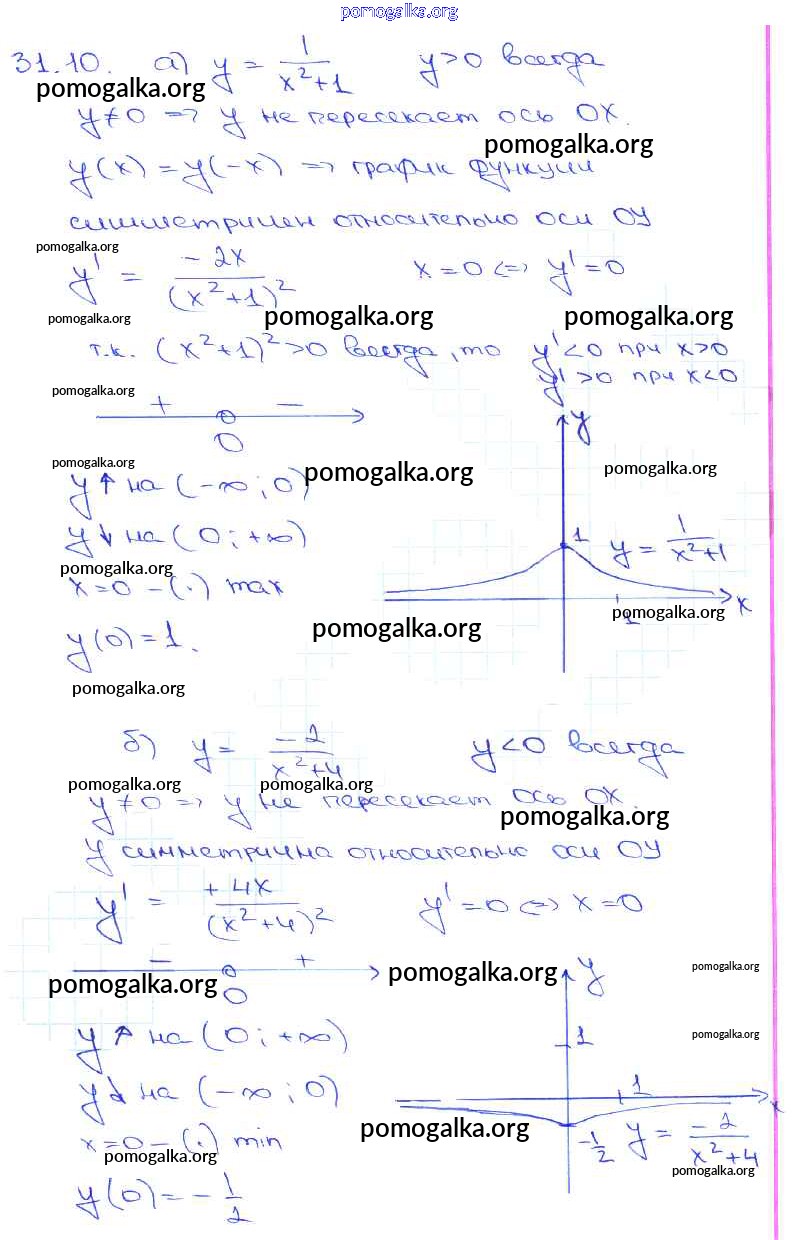 pomogalka.org
31.10. а) y = 1/(x²+1) y>0 всегда
pomogalka.org
y≠0 => y не пересекает ось OX.
pomogalka.org
y(x) = y(-x) => график функции
симметричен относительно оси OY
pomogalka.org
y' = -2x/(x²+1)² x=0 <=> y'=0
pomogalka.org pomogalka.org pomogalka.org
т.к. (x²+1)²>0 всегда, то y'<0 при x>0
y'>0 при x<0
pomogalka.org
+ −
0
y
pomogalka.org pomogalka.org pomogalka.org
y↑ на (-∞; 0)
y↓ на (0; +∞)
1 y = 1/(x²+1)
pomogalka.org
x=0 – (·) max
x
pomogalka.org
1
pomogalka.org
y(0) = 1.
pomogalka.org
б) y = -2/(x²+4) y<0 всегда
pomogalka.org pomogalka.org
y≠0 => y не пересекает ось OX.
pomogalka.org
y симметрична относительно оси OY
y' = +4x/(x²+4)² y'=0 <=> x=0
− +
0
pomogalka.org pomogalka.org pomogalka.org
y
y↑ на (0; +∞)
1 pomogalka.org
y↓ на (-∞; 0)
1
x
pomogalka.org
x=0 – (·) min
-1/2 y = -2/(x²+4)
pomogalka.org pomogalka.org
y(0) = -1/2